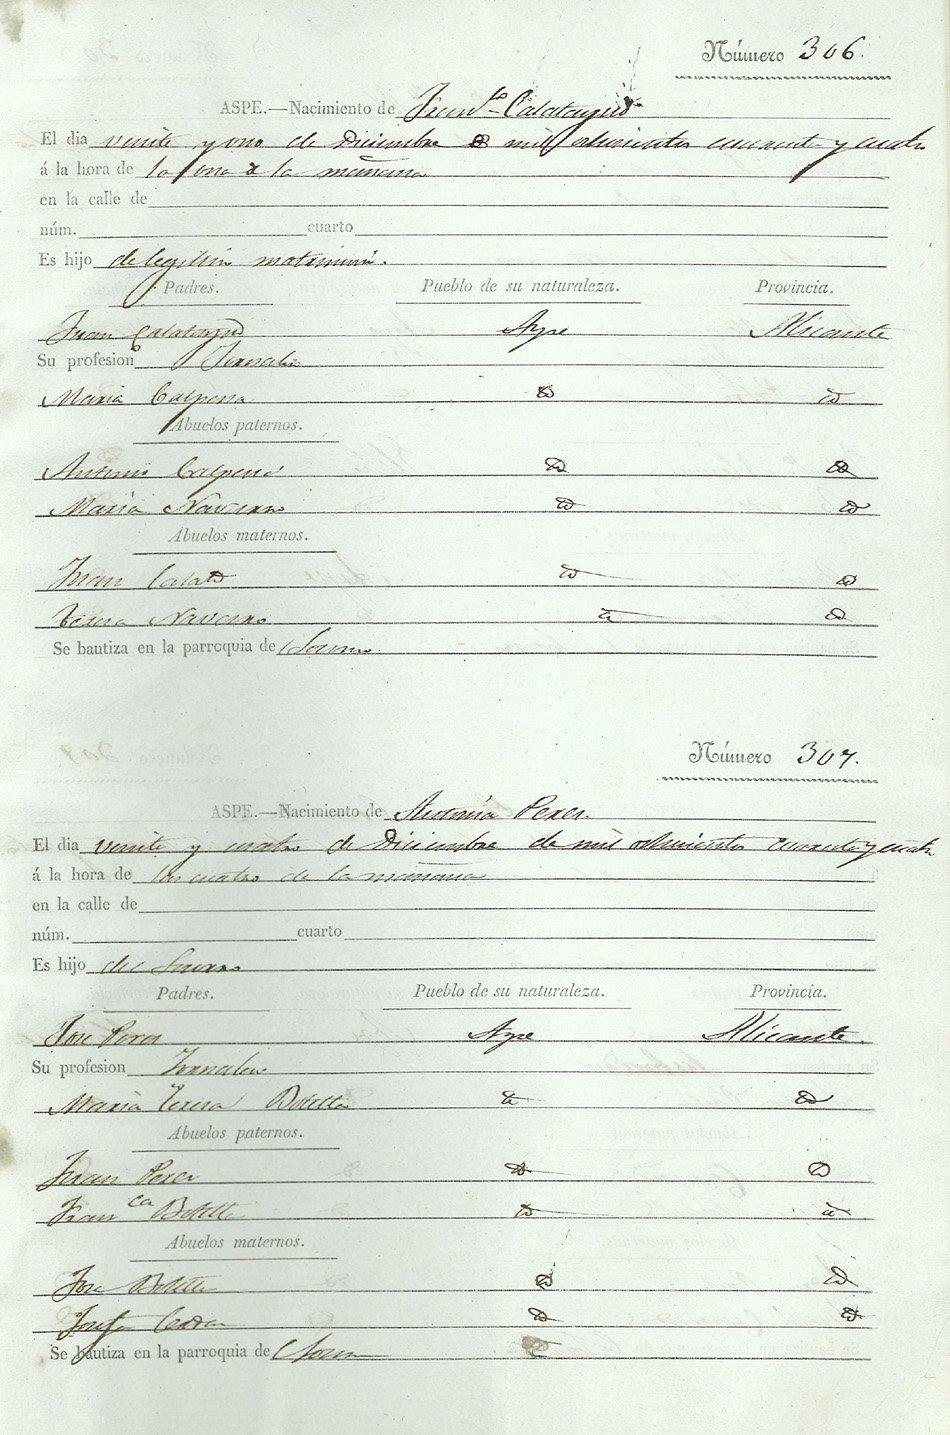 Número 306
ASPE.—Nacimiento de Franco Calatayud
El dia veinte y uno de Diciembre de mil ochocientos cuarenta y cuatro
á la hora de la una de la mañana
en la calle de
núm. cuarto
Es hijo de legitimo matrimonio.
Padres. Pueblo de su naturaleza. Provincia.
Juan Calatayud Aspe Alicante
Su profesion Jornalero
Maria Calpena id id
Abuelos paternos.
Antonio Calpena id id
Maria Navarro id id
Abuelos maternos.
Juan Calatd id id
Teresa Navarro id id
Se bautiza en la parroquia de
Número 307.
ASPE.—Nacimiento de Antonia Perez.
El dia veinte y cuatro de Diciembre de mil ochocientos cuarenta y cuatro
á la hora de las cuatro de la mañana
en la calle de
núm. cuarto
Es hijo de
Padres. Pueblo de su naturaleza. Provincia.
Jose Perez Aspe Alicante.
Su profesion Jornalero
Maria Teresa Botella id id
Abuelos paternos.
Juan Perez id id
Franca Botella id id
Abuelos maternos.
Jose Botella id id
Josefa id id
Se bautiza en la parroquia de